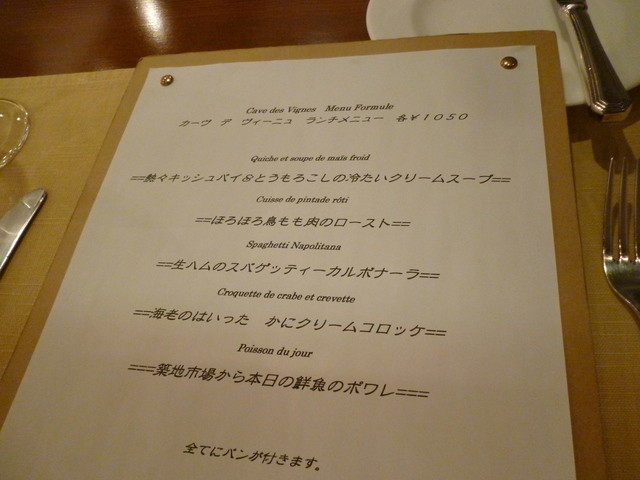 Cave des Vignes Menu Formule
カーヴ デ ヴィーニュ ランチメニュー 各￥1050
Quiche et soupe de maïs froid
==熱々キッシュパイ&とうもろこしの冷たいクリームスープ==
Cuisse de pintade rôti
==ほろほろ鳥もも肉のロースト==
Spaghetti Napolitana
==生ハムのスパゲッティーカルボナーラ==
Croquette de crabe et crevette
==海老のはいった かにクリームコロッケ==
Poisson du jour
===築地市場から本日の鮮魚のポワレ===
全てにパンが付きます。